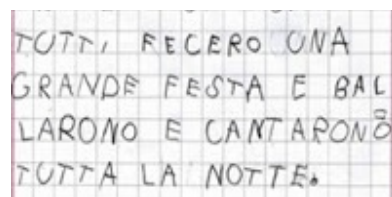 TUTTI, FECERO UNA
GRANDE FESTA E BAL
LARONO E CANTARONO
TUTTA LA NOTTE.